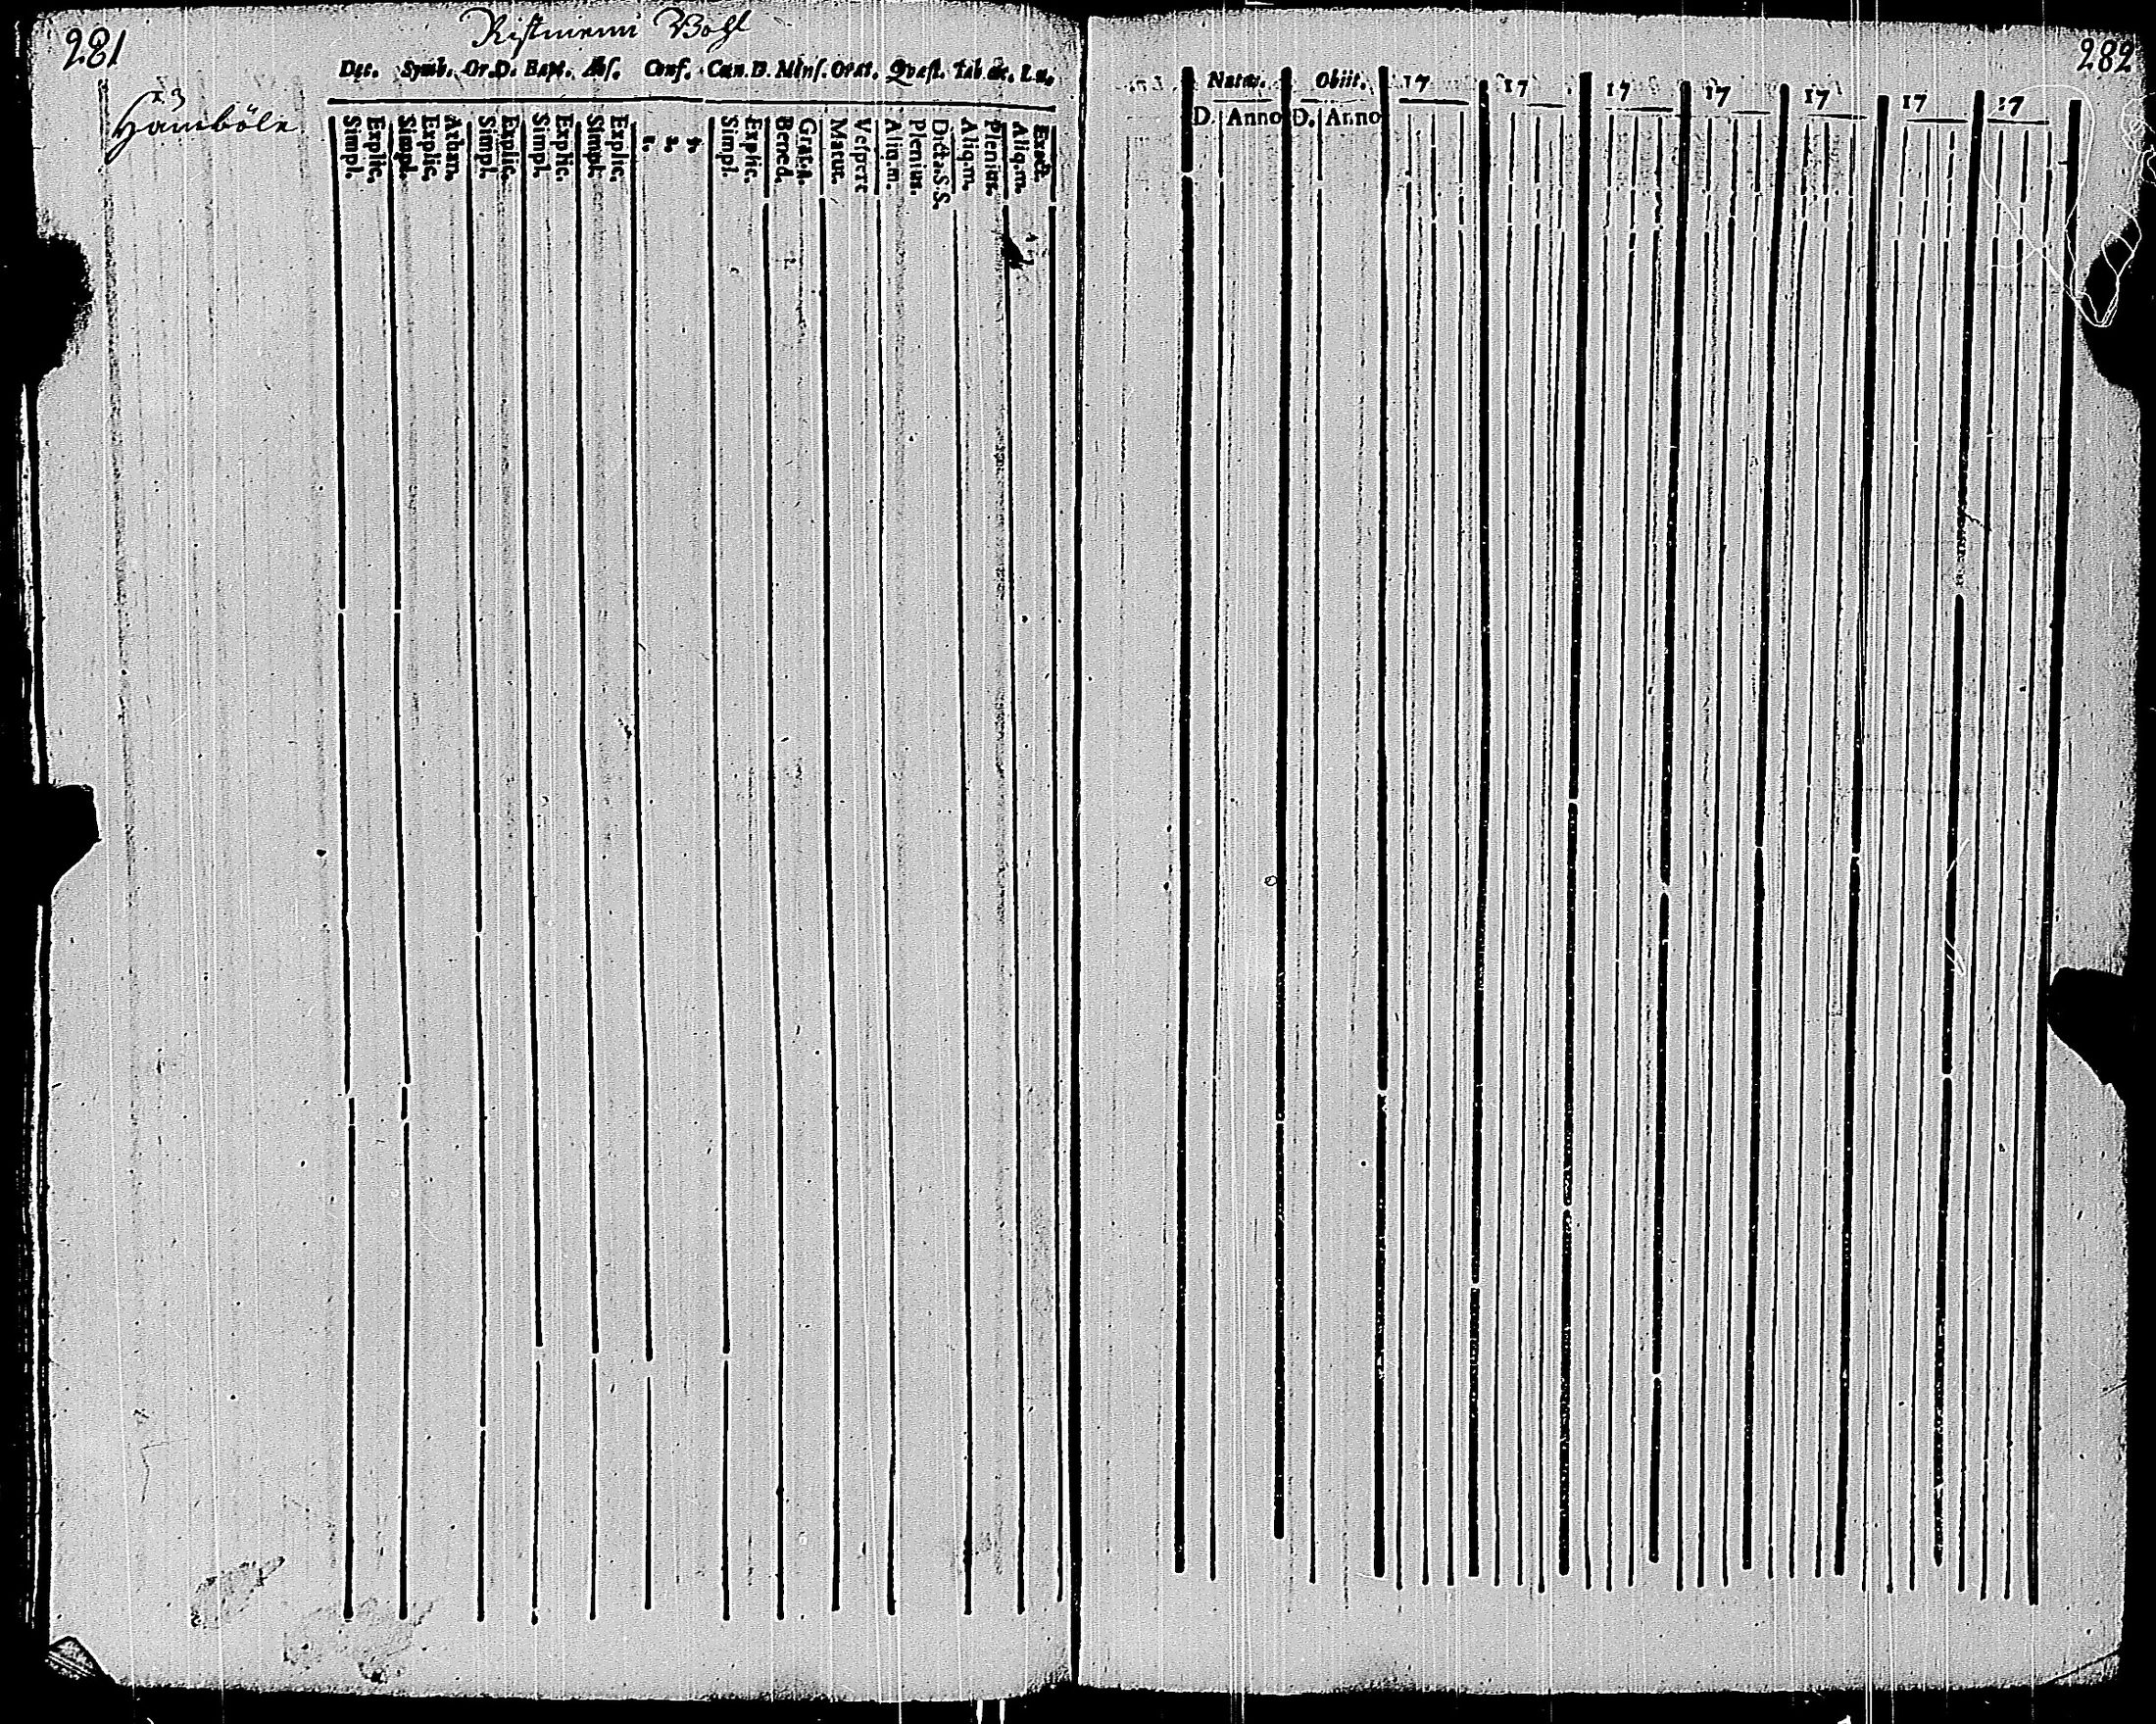 281
Ristiniemi Bohl
Dec. Symb. Or.D. Bapt. Abs. Conf. Cœn.D. Mens. Orat. Qvæst. Tab.œc. L.u.
Hamböle
Simpl. Explic. Simpl. Explic. Athan. Simpl. Explic. Simpl. Explic. Simpl. Explic. 1. 2. 3. Simpl. Explic. Bened. Grat.a. Matut. Vespere Aliq.m. Plenius. Dict.a.S.S. Aliq.m. Plenius. Aliq.m. Exact.
282
Natus. Obiit. 17 17 17 17 17 17 17
D. Anno D. Anno